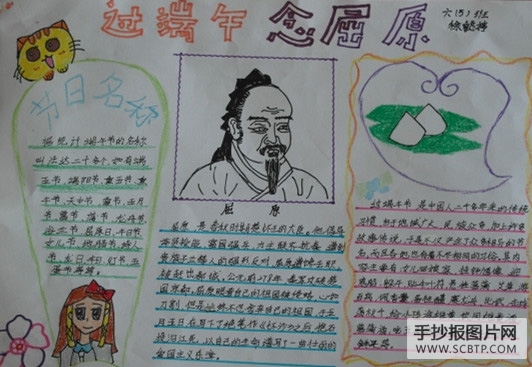 过端午 念屈原
六(5)班
节日名称
据统计端午节的名称
叫法达二十多个，如有端
五节、端阳节、重五节、重
午节、天中节、夏节、五月
节、菖节、蒲节、龙舟节、
浴兰节、屈原日、午日节、
女儿节、地腊节、诗人
节、龙日、午日、灯节、五
蛋节等等。
屈原
屈原，是春秋时期楚怀王的大臣。他倡导
举贤授能，富国强兵，力主联齐抗秦，遭到
贵族子兰等人的强烈反对，屈原遭馋去职，
赶出都城，公元前278年，秦军攻破楚
国京都。屈原眼看自己的祖国被侵略，心如
刀割，但是始终不忍舍弃自己的祖国，于五
月五日，在写下了绝笔作《怀沙》之后，抱石
投汨江死，以自己的生命谱写了一曲壮丽的
爱国主义乐章。
过端午节，是中国人二千多年来的传统
习惯，由于地域广大，民族众多，
故事传说，于是不仅产生了众多相异的节
名，而且各地也有着不尽相同的习俗。其内
容主要有：女儿回娘家，挂钟馗像，
手抄报图片网
WWW.SCBTP.COM